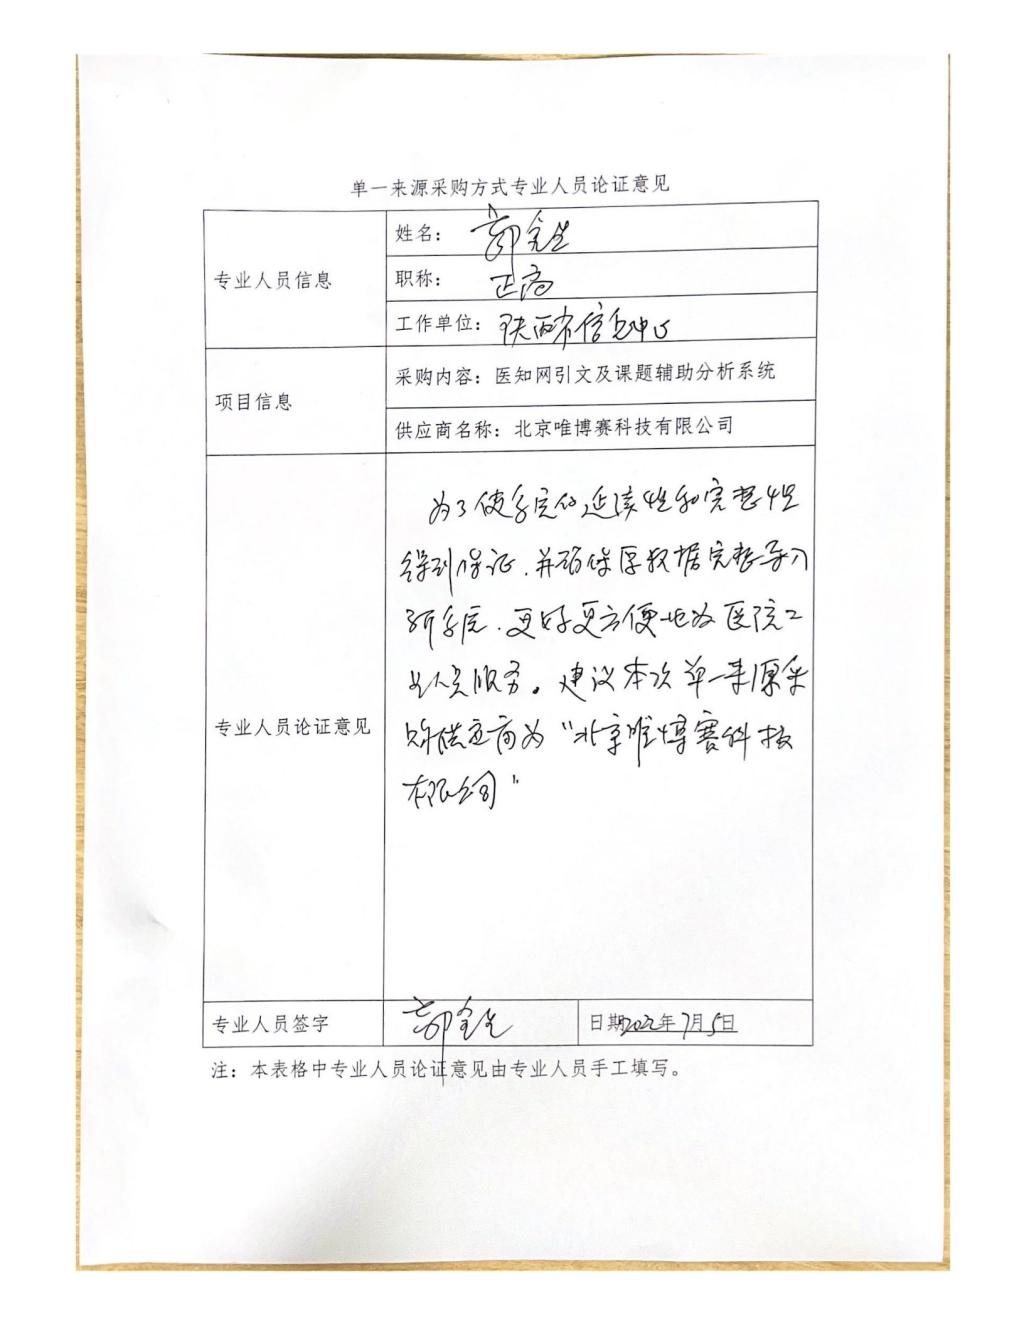 单一来源采购方式专业人员论证意见
专业人员信息
姓名：郭全生
职称：正高
工作单位：陕西省信息中心
项目信息
采购内容：医知网引文及课题辅助分析系统
供应商名称：北京唯博赛科技有限公司
专业人员论证意见
为了使系统的延续性和完整性
得到保证，并确保原数据完整导入
新系统，更好更方便地为医院工
作人员服务。建议本次单一来源采
购供应商为“北京唯博赛科技
有限公司”
专业人员签字
郭全生
日期2022年7月5日
注：本表格中专业人员论证意见由专业人员手工填写。